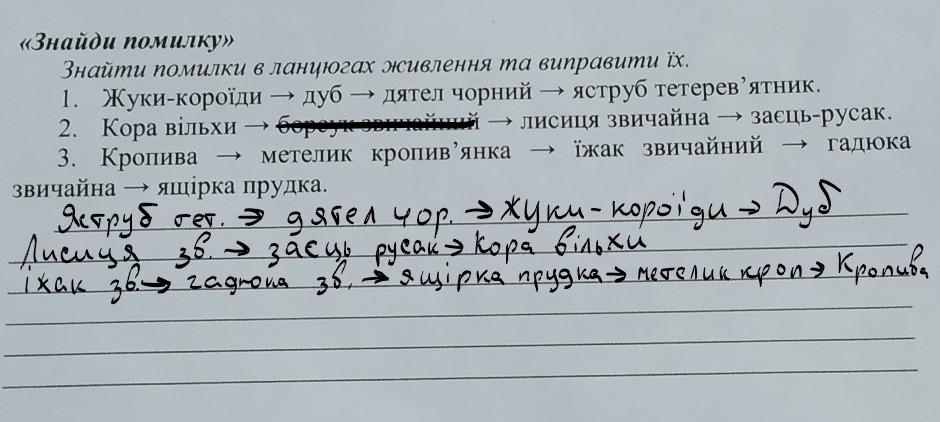 «Знайди помилку»
Знайти помилки в ланцюгах живлення та виправити їх.
1. Жуки-короїди → дуб → дятел чорний → яструб тетерев’ятник.
2. Кора вільхи → борсук звичайний → лисиця звичайна → заєць-русак.
3. Кропива → метелик кропив’янка → їжак звичайний → гадюка
звичайна → ящірка прудка.
Яструб тет. → дятел чор. → Жуки-короїди → Дуб
Лисиця зв. → заєць русак → кора вільхи
їжак зв. → гадюка зв. → ящірка прудка → метелик кроп → Кропива